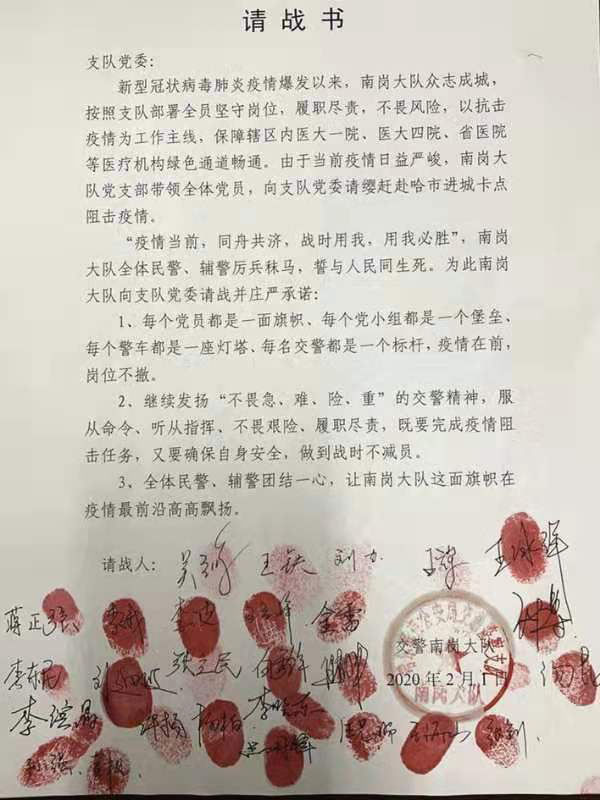 请战书
支队党委：
新型冠状病毒肺炎疫情爆发以来，南岗大队众志成城，
按照支队部署全员坚守岗位，履职尽责，不畏风险，以抗击
疫情为工作主线，保障辖区内医大一院、医大四院、省医院
等医疗机构绿色通道畅通。由于当前疫情日益严峻，南岗大
队党支部带领全体党员，向支队党委请缨赶赴哈市进城卡点
阻击疫情。
“疫情当前，同舟共济，战时用我，用我必胜”，南岗
大队全体民警、辅警厉兵秣马，誓与人民同生死。为此南岗
大队向支队党委请战并庄严承诺：
1、每个党员都是一面旗帜、每个党小组都是一个堡垒、
每个警车都是一座灯塔、每名交警都是一个标杆，疫情在前，
岗位不撤。
2、继续发扬“不畏急、难、险、重”的交警精神，服
从命令、听从指挥、不畏艰险、履职尽责，既要完成疫情阻
击任务，又要确保自身安全，做到战时不减员。
3、全体民警、辅警团结一心，让南岗大队这面旗帜在
疫情最前沿高高飘扬。
请战人：
蒋正强 金雷
交警南岗大队
张立民
2020年2月1日
南岗大队